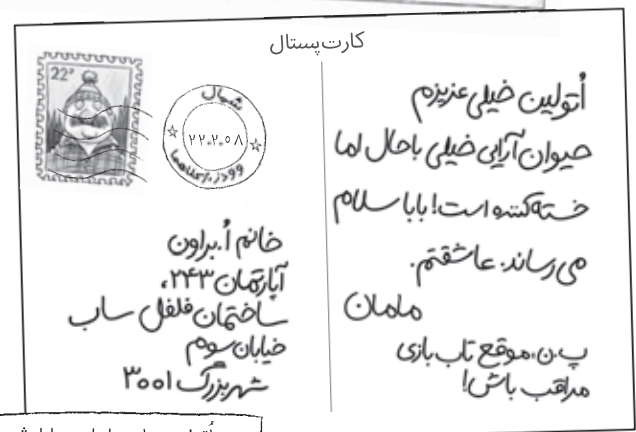 کارت‌پستال
22P
شمال
۲۲.۲.۵۸
اُتولین خیلی عزیزم
حیوان‌آرایی خیلی باحال اما
خسته‌کننده است! بابا سلام
می‌رساند. عاشقتم.
مامان
پ.ن، موقع تاب‌بازی
مراقب باش!
خانم اُ. براون
آپارتمان ۲۴۳،
ساختمان فلفل ساب
خیابان سوم
شهر بزرگ ۳۰۰۱